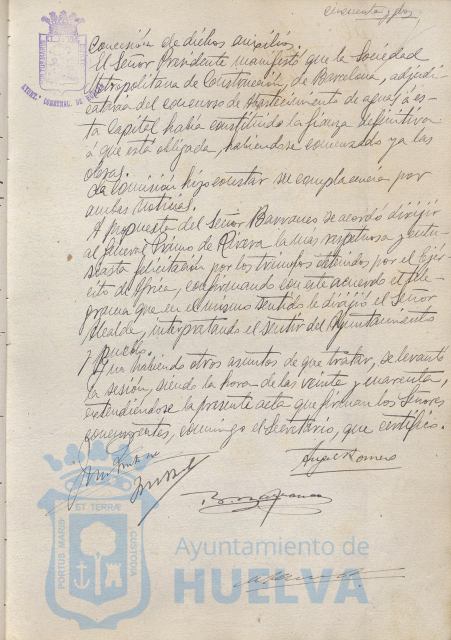 cincuenta y dos
concesión de dichos auxilios.
El Señor Presidente manifestó que la Sociedad
Metropolitana de Construcción, de Barcelona, adjudi
cataria del concurso de abastecimiento de agua á es-
ta Capital había constituido la fianza definitiva
á que está obligada, habiéndose comenzado ya las
obras.
La Comisión hizo constar su complacencia por
ambas noticias.
A propuesta del Señor Barranco se acordó dirigir
al General Primo de Rivera la más respetuosa y entu-
siasta felicitación por los triunfos obtenidos por el Ejér
cito de Africa, confirmando con este acuerdo el tele-
grama que en el mismo sentido le dirigió el Señor
Alcalde, interpretando el sentir del Ayuntamiento
y pueblo.
Y no habiendo otros asuntos de que tratar, se levantó
la sesión, siendo la hora de las veinte y cuarenta,
extendiéndose la presente acta que firman los Señores
concurrentes, conmigo el Secretario, que certifico.
Angel Romero
PORTUS MARIS ET TERRÆ CUSTODIA
Ayuntamiento de
HUELVA